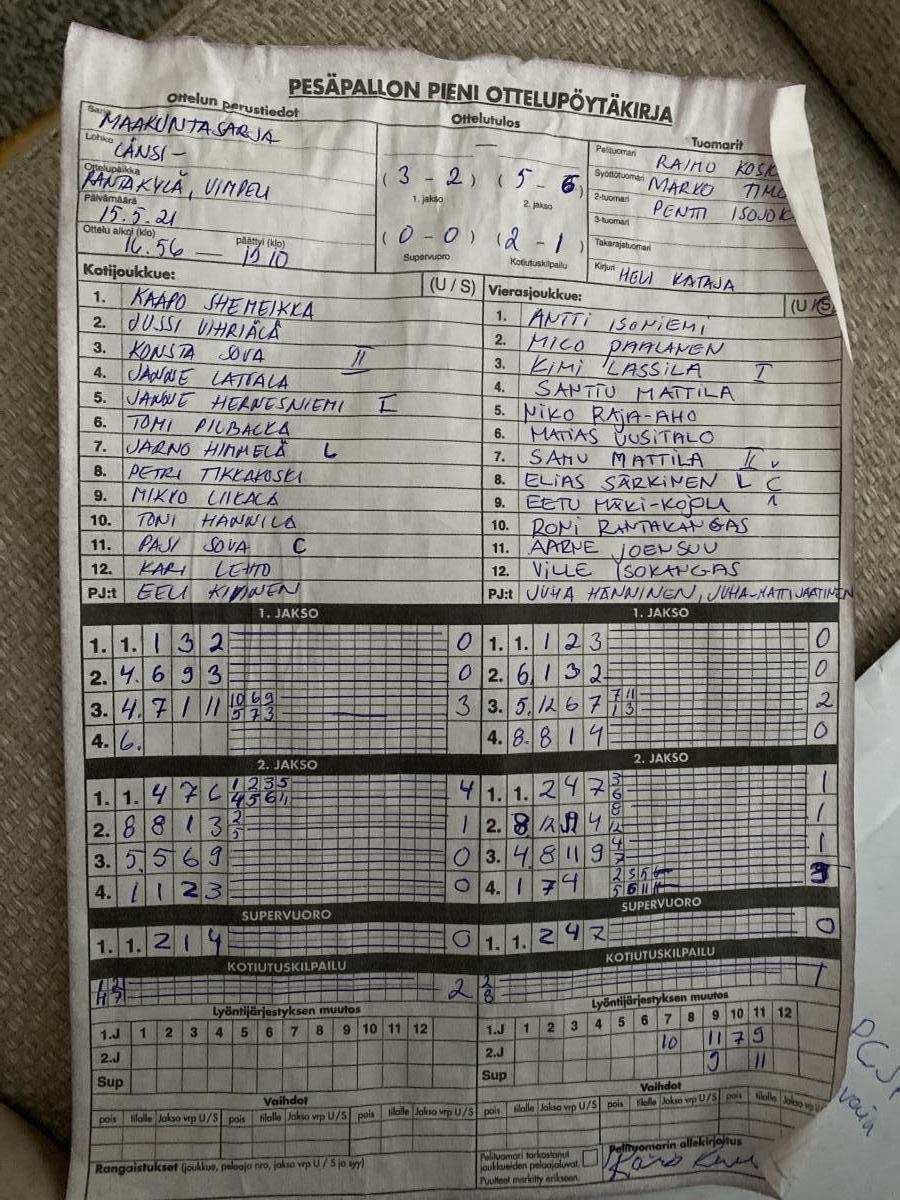 PESÄPALLON PIENI OTTELUPÖYTÄKIRJA
Ottelun perustiedot
Sarja MAAKUNTASARJA
Lohko LÄNSI -
Ottelupaikka RANTAKYLÄ, VIMPELI
Päivämäärä 15.5.21
Ottelu alkoi (klo) 16.56 — päättyi (klo) 19 10
Ottelutulos
—
(3 - 2) (5 - 6)
1. jakso 2. jakso
(0 - 0) (2 - 1)
Supervuoro Kotiutuskilpailu
Tuomarit
Pelituomari RAIMO KOSK
Syöttötuomari MARKO TIMO
2-tuomari PENTTI ISOJOK
3-tuomari
Takarajatuomari
Kirjuri HELI KATAJA
Kotijoukkue: (U / S)
1. KAAPO SHEMEIKKA
2. JUSSI VIHRIÄLÄ
3. KONSTA SOVA II
4. JANNE LATTALA
5. JANNE HERNESNIEMI I
6. TOMI PILBACKA
7. JARNO HIMMELÄ L
8. PETRI TIKKAKOSKI
9. MIKKO LIIKALA
10. TONI HANNILA
11. PASI SOVA C
12. KARI LEHTO
PJ:t EELI KIVINEN
Vierasjoukkue: (U / S)
1. ANTTI ISONIEMI
2. MICO PAALANEN
3. KIMI LASSILA I
4. SANTTU MATTILA
5. NIKO RAJA-AHO
6. MATIAS UUSITALO
7. SAMU MATTILA II
8. ELIAS SÄRKINEN L C
9. EETU MÄKI-KOJOLA
10. RONI RANTAKANGAS
11. AARNE JOENSUU
12. VILLE ISOKANGAS
PJ:t JUHA HÄNNINEN, JUHA-MATTI JAATINEN
1. JAKSO
1. 1. 1 3 2 0
2. 4. 6 9 3 0
3. 4. 7 1 11 10 6 9 3
5 7 3
4. 6.
1. JAKSO
1. 1. 1 2 3 0
2. 6. 1 3 2 0
3. 5. 12 6 7 7 11 2
1 3
4. 8. 8 1 4 0
2. JAKSO
1. 1. 4 7 6 1 2 3 5 4
4 5 6 11
2. 8 8 1 3 2 1
5
3. 5. 5 6 9 0
4. 1 1 2 3 0
2. JAKSO
1. 1. 2 4 7 3 1
6
2. 8 12 4 8 1
12
3. 4. 8 11 9 4 1
7
4. 1 7 4 2 3 5 3
5 6 11
SUPERVUORO
1. 1. 2 1 4 0
SUPERVUORO
1. 1. 2 4 7 0
KOTIUTUSKILPAILU
2
KOTIUTUSKILPAILU
2 1
8
Lyöntijärjestyksen muutos
1.J 1 2 3 4 5 6 7 8 9 10 11 12
2.J
Sup
Lyöntijärjestyksen muutos
1.J 1 2 3 4 5 6 7 8 9 10 11 12
2.J 10 11 7 9
Sup 9 11
Vaihdot
pois tilalle Jakso vrp U / S pois tilalle Jakso vrp U / S pois tilalle Jakso vrp U / S
Vaihdot
pois tilalle Jakso vrp U / S pois tilalle Jakso vrp U / S pois tilalle Jakso vrp U/S
Rangaistukset (joukkue, pelaaja nro, jakso vrp U / S ja syy)
Pelituomari tarkastanut
joukkueiden pelaajaluvat.
Puutteet merkitty erikseen.
Pelituomarin allekirjoitus